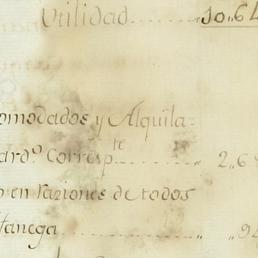 Utilidad........ 10,,64
omodados y Alquila=
ard.º Corresp.te ........ ,, 2,,6
en raziones de todos
fanega ........ ,, ,,9